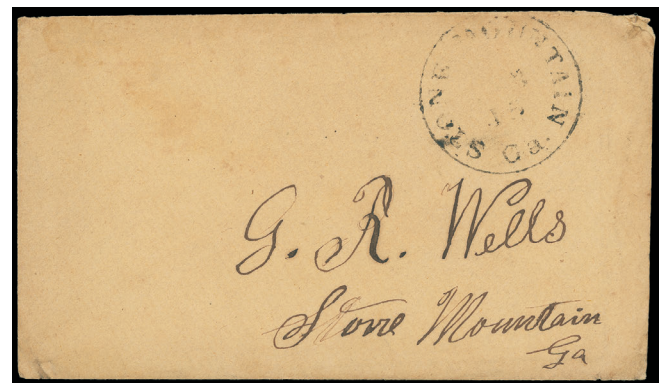 STONE MOUNTAIN Ga.
G. R. Wells
Stone Mountain
Ga